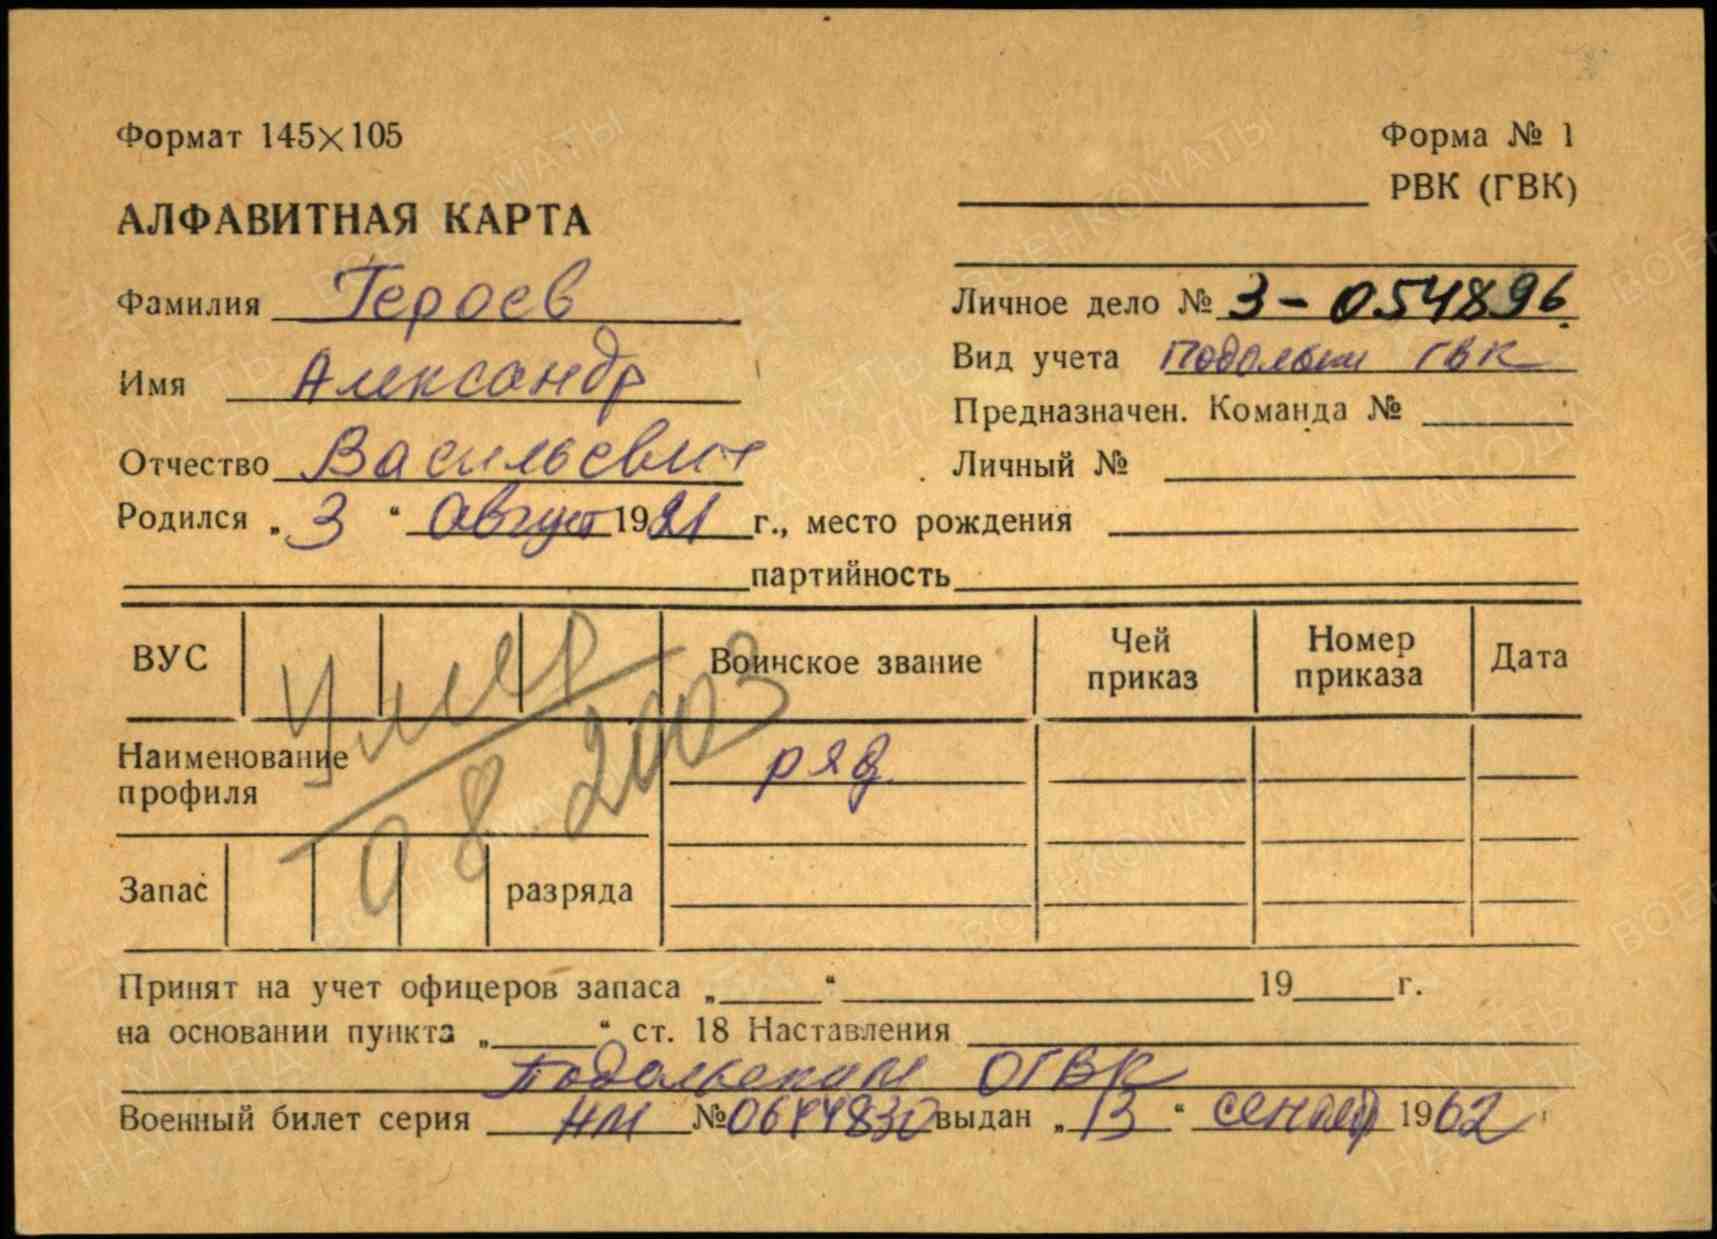 Формат 145×105
Форма № 1
РВК (ГВК)
АЛФАВИТНАЯ КАРТА
Фамилия Героев
Личное дело № 3-054896
Имя Александр
Вид учета Подольский ГВК
Предназначен. Команда №
Отчество Васильевич
Личный №
Родился „3“ август 1921 г., место рождения
партийность
ВУС
Воинское звание
Чей приказ
Номер приказа
Дата
Умер
08.2003
Наименование профиля
ряд.
Запас разряда
Принят на учет офицеров запаса „ “ 19 г.
на основании пункта „ “ ст. 18 Наставления
Подольским ОГВК
Военный билет серия НМ № выдан „13“ 1962
ПАМЯТЬ НАРОДА
ВОЕНКОМАТЫ